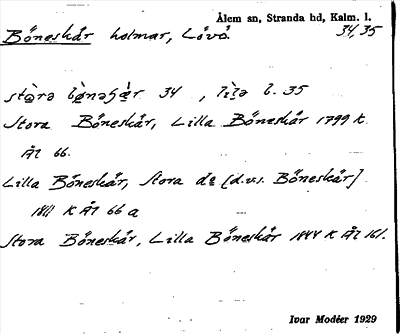 Ålem sn, Stranda hd, Kalm. l.
Böneskär holmar, Lövö. 34, 35
34, l. 35
Stora Böneskär, Lilla Böneskär 1799 k
Äl 66.
Lilla Böneskär, Stora de [d.v.s. Böneskär]
1811 K Äl 66 a
Stora Böneskär, Lilla Böneskär 1844 K Äl 161.
Ivar Modéer 1929